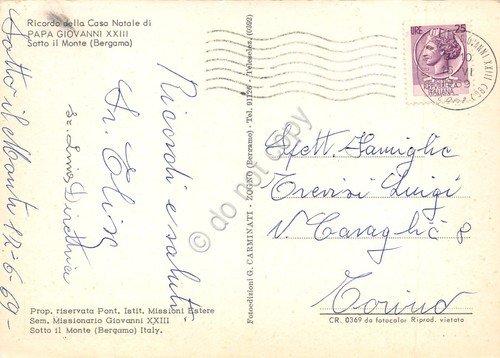 Ricordo della Casa Natale di
PAPA GIOVANNI XXIII
Sotto il Monte (Bergamo)
Sotto il Monte 12-6-69-
Ricordi e saluti
Sr.
Direttrice
Prop. riservata Pont. Istit. Missioni Estere
Sem. Missionario Giovanni XXIII
Sotto il Monte (Bergamo) Italy.
Fotoedizioni G. CARMINATI - ZOGNO (Bergamo) - Tel. 91126 - Teleselez. (0352)
LIRE 25
ITALIANA
GIOVANNI XXIII
Spett. Famiglia
Trevisi Luigi
V. Cavaglià 8
Torino
CR. 0369 da fotocolor Riprod. vietata
do not copy